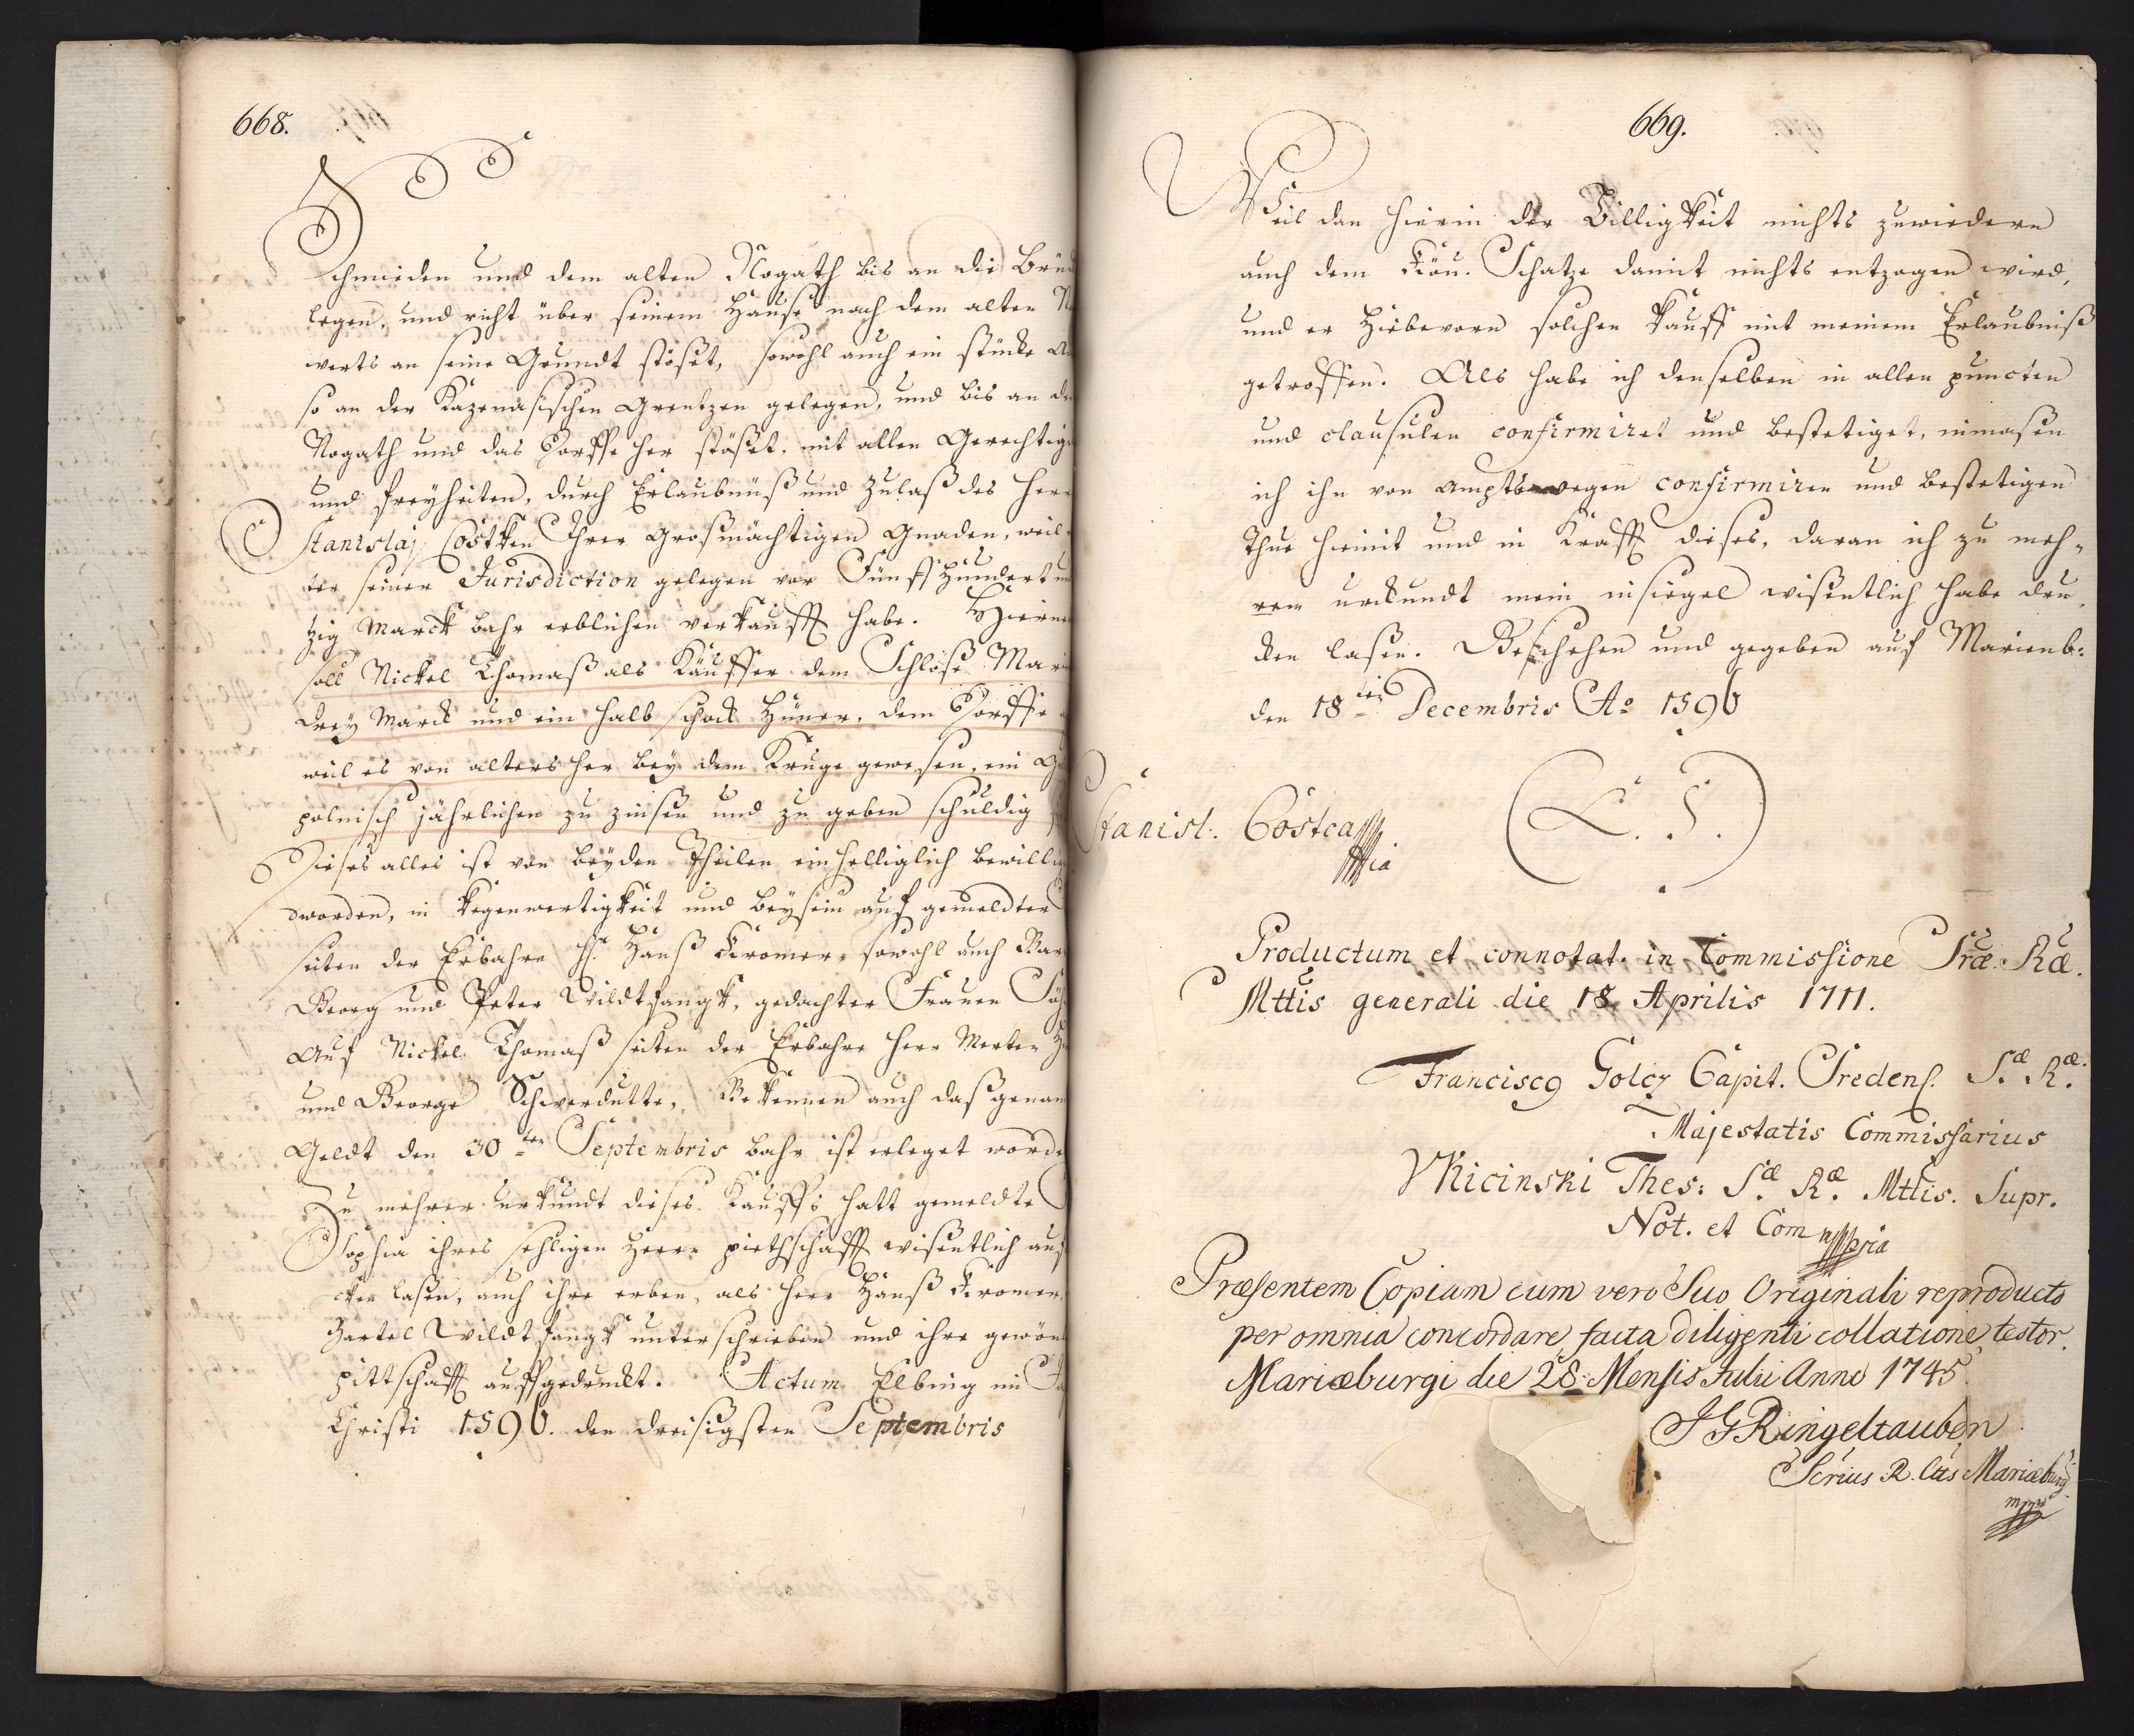 668.
Schmiden und dem alten Nogath bis an die Brü
legen, und recht über seinem Hause nach dem alten
werts an seine Grundt stößet, sowohl auch ein stücke
so an der Kazenasischen Grentzen gelegen, und bis an
Nogath und das Dorffe her stößet. mit allen Gerechtig
und freyheiten, durch Erlaubnüß und zulaß des Her
Stanislaj Costken Ihrer Großmächtigen Gnaden, weil
ter seiner Jurisdiction gelegen vor Fünff Hundert
tzig Marck bahr erblichen verkaufft habe.
soll Nickel Thomaß als Käuffer dem Schloße Mari
drey Marck und ein halb schock Hüner, dem Dorffe
weil es von alters her bey dem Kruge gewesen, ein
polnisch jährlichen zu zinsen und zu geben schuldig
Dieses alles ist von beyden Theilen einhelliglich bewillig
worden, in kegenwertigkeit und beysein auf gemeldter
seiten der Erbahre H. Hanß Kromer, sowohl auch
Georg und Peter Wildtfangk, gedachter Frauen Söh
Auf Nickel Thomaß seiten der Erbahre Herr Merten
und George Schwerdutte, Bekennen auch daß genan
Geldt den 30ten Septembris bahr ist erleget worde
Zu mehrer urkundt dieses Kauffs hatt gemeldte
Sophia ihres sehligen Herrn piethschafft wißentlich auf
cken laßen, auch ihre erben, als Herr Hanß Kromer,
Bartel Wildtfangk unterschrieben und ihre gewön
pittschafft auffgedruckt. Actum Elbing im
Christi 1596. den dreisigsten Septembris
669.
Weil dan hierin der Billigkeit nichts zuwiedern
auch dem Kön. Schatze damit nichts entzogen wird,
und er Hiebevorn solchen kauff mit meinem Erlaubniß
getroffen. Als habe ich denselben in allen puncten
und clausulen confirmiret und bestetiget, inmaßen
ich ihn von Amptswegen confirmiren und bestetigen
Thue hiemit und in Krafft dieses, daran ich zu meh-
rem urkundt mein insiegel wißentlich habe dru-
cken laßen. Geschehen und gegeben auf Marienb:
den 18ten Decembris Ao 1596
Stanisl. Costca mppia
L. S.
Productum et connotat. in Commissione Sræ Ræ.
Mttis generali die 18. Aprilis 1711.
Francisc9 Golcz Capit. Sredens. S.æ R.æ
Majestatis Commissarius
VKicinski Thes: S.æ R.æ Mttis. Supr.
Not. et Com mppria
Præsentem Copiam cum vero Suo Originali reproducto
per omnia concordare, facta diligenti collatione, testor.
Mariæburgi die 28. Mensis Julii Anno 1745
J G Ringeltauben
Scrius R. Cttis Mariæburg
mppr